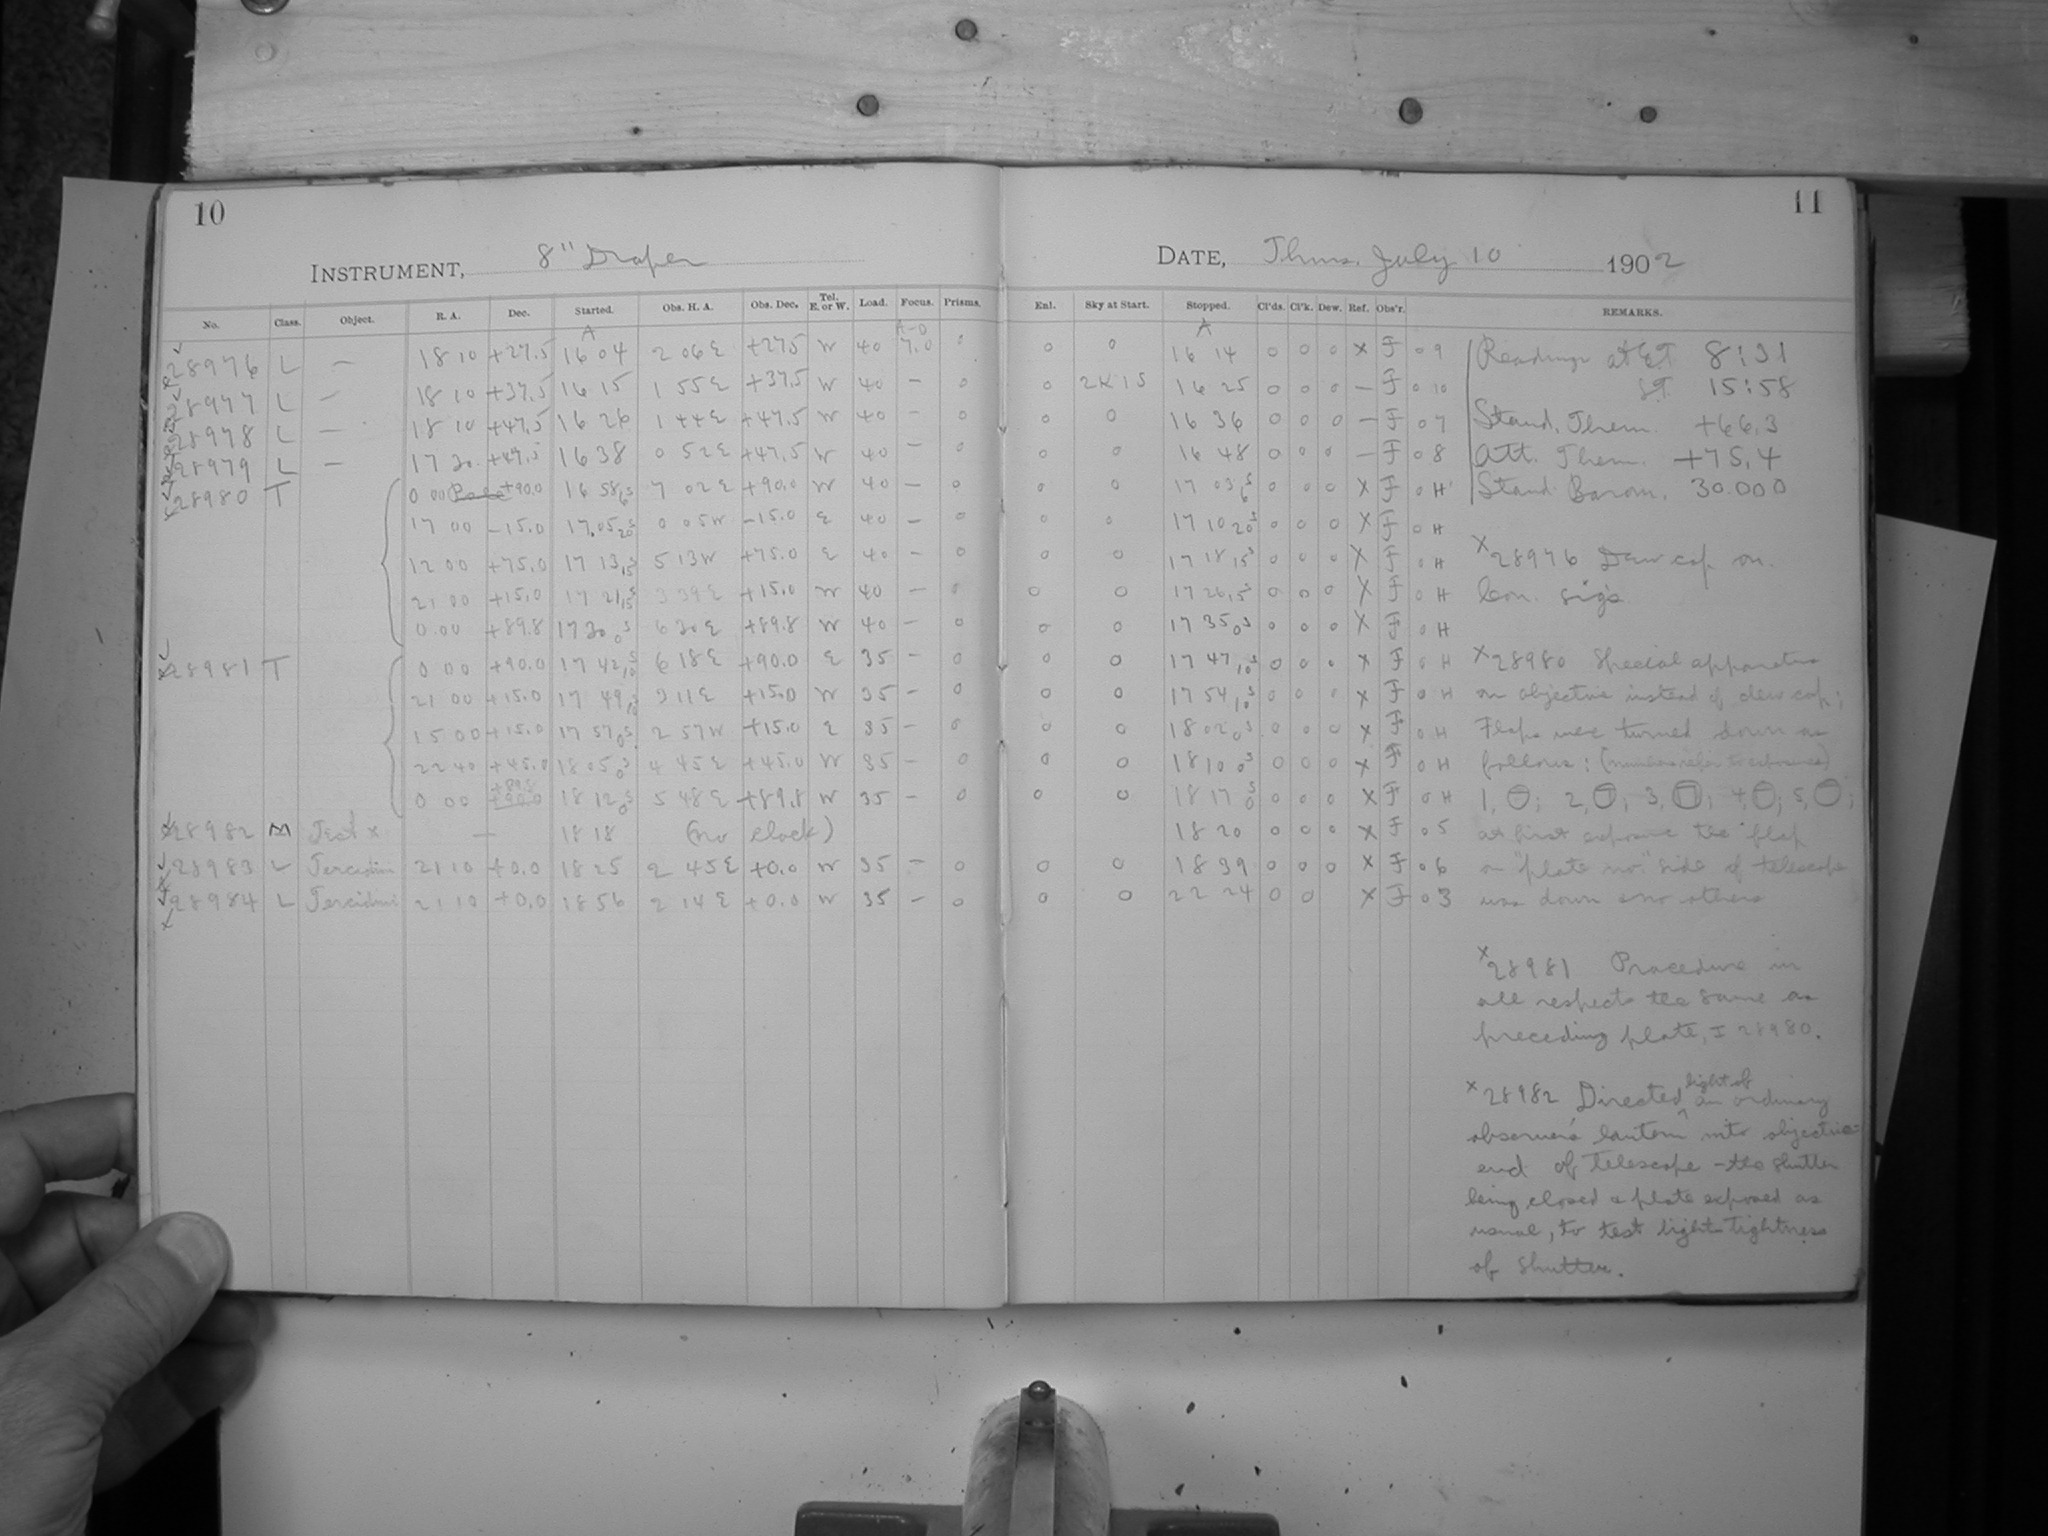 10
11
INSTRUMENT, 8" Draper
DATE, Thurs. July 10 1902
No. Class. Object. R. A. Dec. Started. Obs. H. A. Obs. Dec. Tel. E. or W. Load. Focus. Prisms. Enl. Sky at Start. Stopped. Cl'ds. Cl'k. Dew. Ref. Obs'r. REMARKS.
A A-0 A
28976 L — 18 10 +27.5 16 04 2 06 E +27.5 W 40 7.0 0 0 0 16 14 0 0 0 x F 0 9
28977 L — 18 10 +37.5 16 15 1 55 E +37.5 W 40 – 0 0 2K15 16 25 0 0 0 – F 0 10
28978 L — 18 10 +47.5 16 26 1 44 E +47.5 W 40 – 0 0 0 16 36 0 0 0 – F 0 7
28979 L — 17 30 +47.5 16 38 0 52 E +47.5 W 40 – 0 0 0 16 48 0 0 0 – F 0 8
28980 T 0 00 +90.0 16 58 7 02 E +90.0 W 40 – 0 0 0 17 03 0 0 0 X F 0 H
17 00 –15.0 17 05 20s 0 05 W –15.0 E 40 – 0 0 0 17 10 20s 0 0 0 X F 0 H
12 00 +75.0 17 13 15s 5 13 W +75.0 E 40 – 0 0 0 17 18 15s 0 0 0 X F 0 H
21 00 +15.0 17 21 15s 3 39 E +15.0 W 40 – 0 0 0 17 26 15s 0 0 0 X F 0 H
0.00 +89.8 17 30 0s 6 30 E +89.8 W 40 – 0 0 0 17 35 0s 0 0 0 X F 0 H
28981 T 0 00 +90.0 17 42 10s 6 18 E +90.0 E 35 – 0 0 0 17 47 10s 0 0 0 x F 0 H
21 00 +15.0 17 49 10s 3 11 E +15.0 W 35 – 0 0 0 17 54 10s 0 0 0 x F 0 H
15 00 +15.0 17 57 0s 2 57 W +15.0 E 35 – 0 0 0 18 02 0s 0 0 0 x F 0 H
22 40 +45.0 18 05 0s 4 45 E +45.0 W 35 – 0 0 0 18 10 0s 0 0 0 x F 0 H
+89.8
0 00 +90.0 18 12 0s 5 48 E +89.8 W 35 – 0 0 0 18 17 0s 0 0 0 X F 0 H
28982 M Test x — 18 18 (no clock) 18 20 0 0 0 x F 0 5
28983 L Tercidini 21 10 +0.0 18 25 2 45 E +0.0 W 35 – 0 0 0 18 39 0 0 0 x F 0 6
28984 L Tercidini 21 10 +0.0 18 56 2 14 E +0.0 W 35 – 0 0 0 22 24 0 0 X F 0 3
Readings at ET 8:31
ST 15:58
Stand. Therm. +66.3
Att. Therm. +75.4
Stand Barom. 30.000
x 28976 Dew cap on.
x 28980 Special apparatus
on objective instead of dew cap;
Flaps were turned down as
follows: (numbers refer to exposures)
1, ; 2, ; 3, ; 4, ; 5, ;
at first exposure the flap
on "plate no." side of telescope
was down & no others
x 28981 Procedure in
all respects the same as
preceding plate, I 28980.
x 28982 Directed light of an ordinary
observer's lantern into objective
end of telescope – the shutter
being closed & plate exposed as
usual, to test light tightness
of shutter.